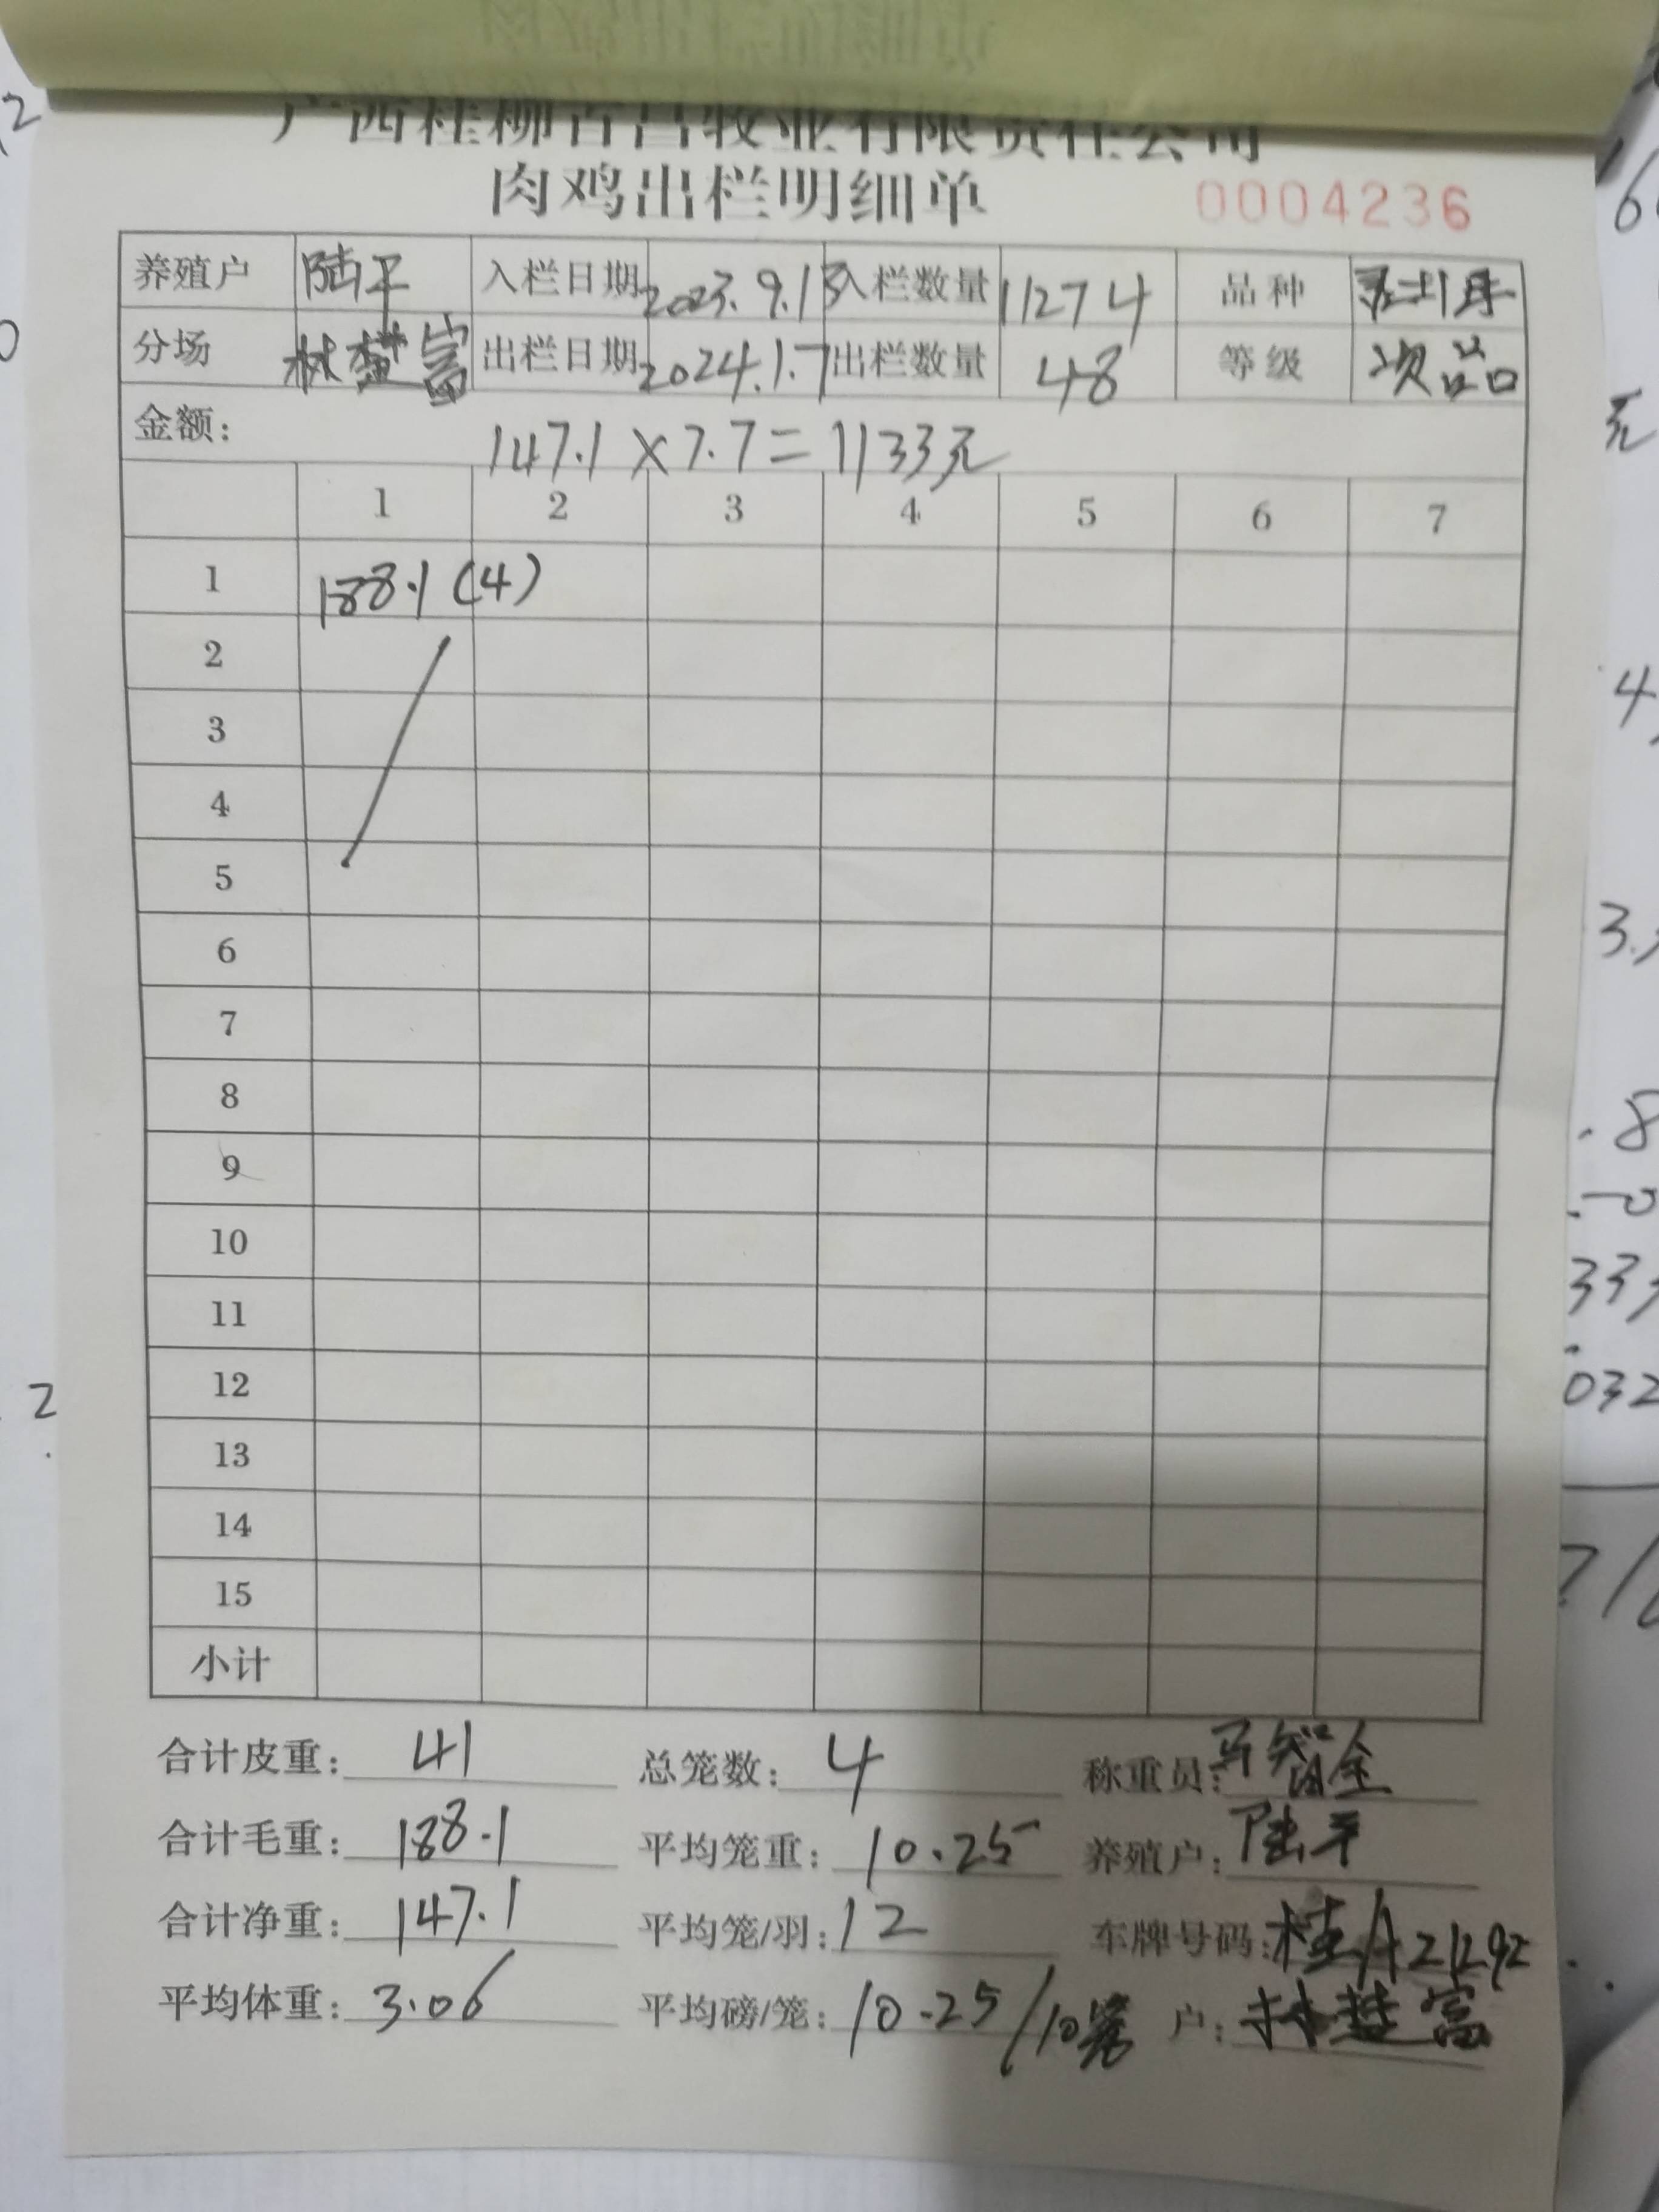 广西桂柳百昌牧业有限责任公司
肉鸡出栏明细单 0004236
养殖户 陆平 入栏日期 2023.9.13 入栏数量 11274 品种
分场 林楚富 出栏日期 2024.1.7 出栏数量 48 等级 次品
金额: 147.1×7.7=1133元
1 2 3 4 5 6 7
1 188.1(4)
2
3
4
5
6
7
8
9
10
11
12
13
14
15
小计
合计皮重: 41 总笼数: 4 称重员: 智全
合计毛重: 188.1 平均笼重: 10.25 养殖户: 陆平
合计净重: 147.1 平均笼/羽: 12 车牌号码: 桂A21292
平均体重: 3.06 平均磅/笼: 10.25/10笼 户: 林楚富